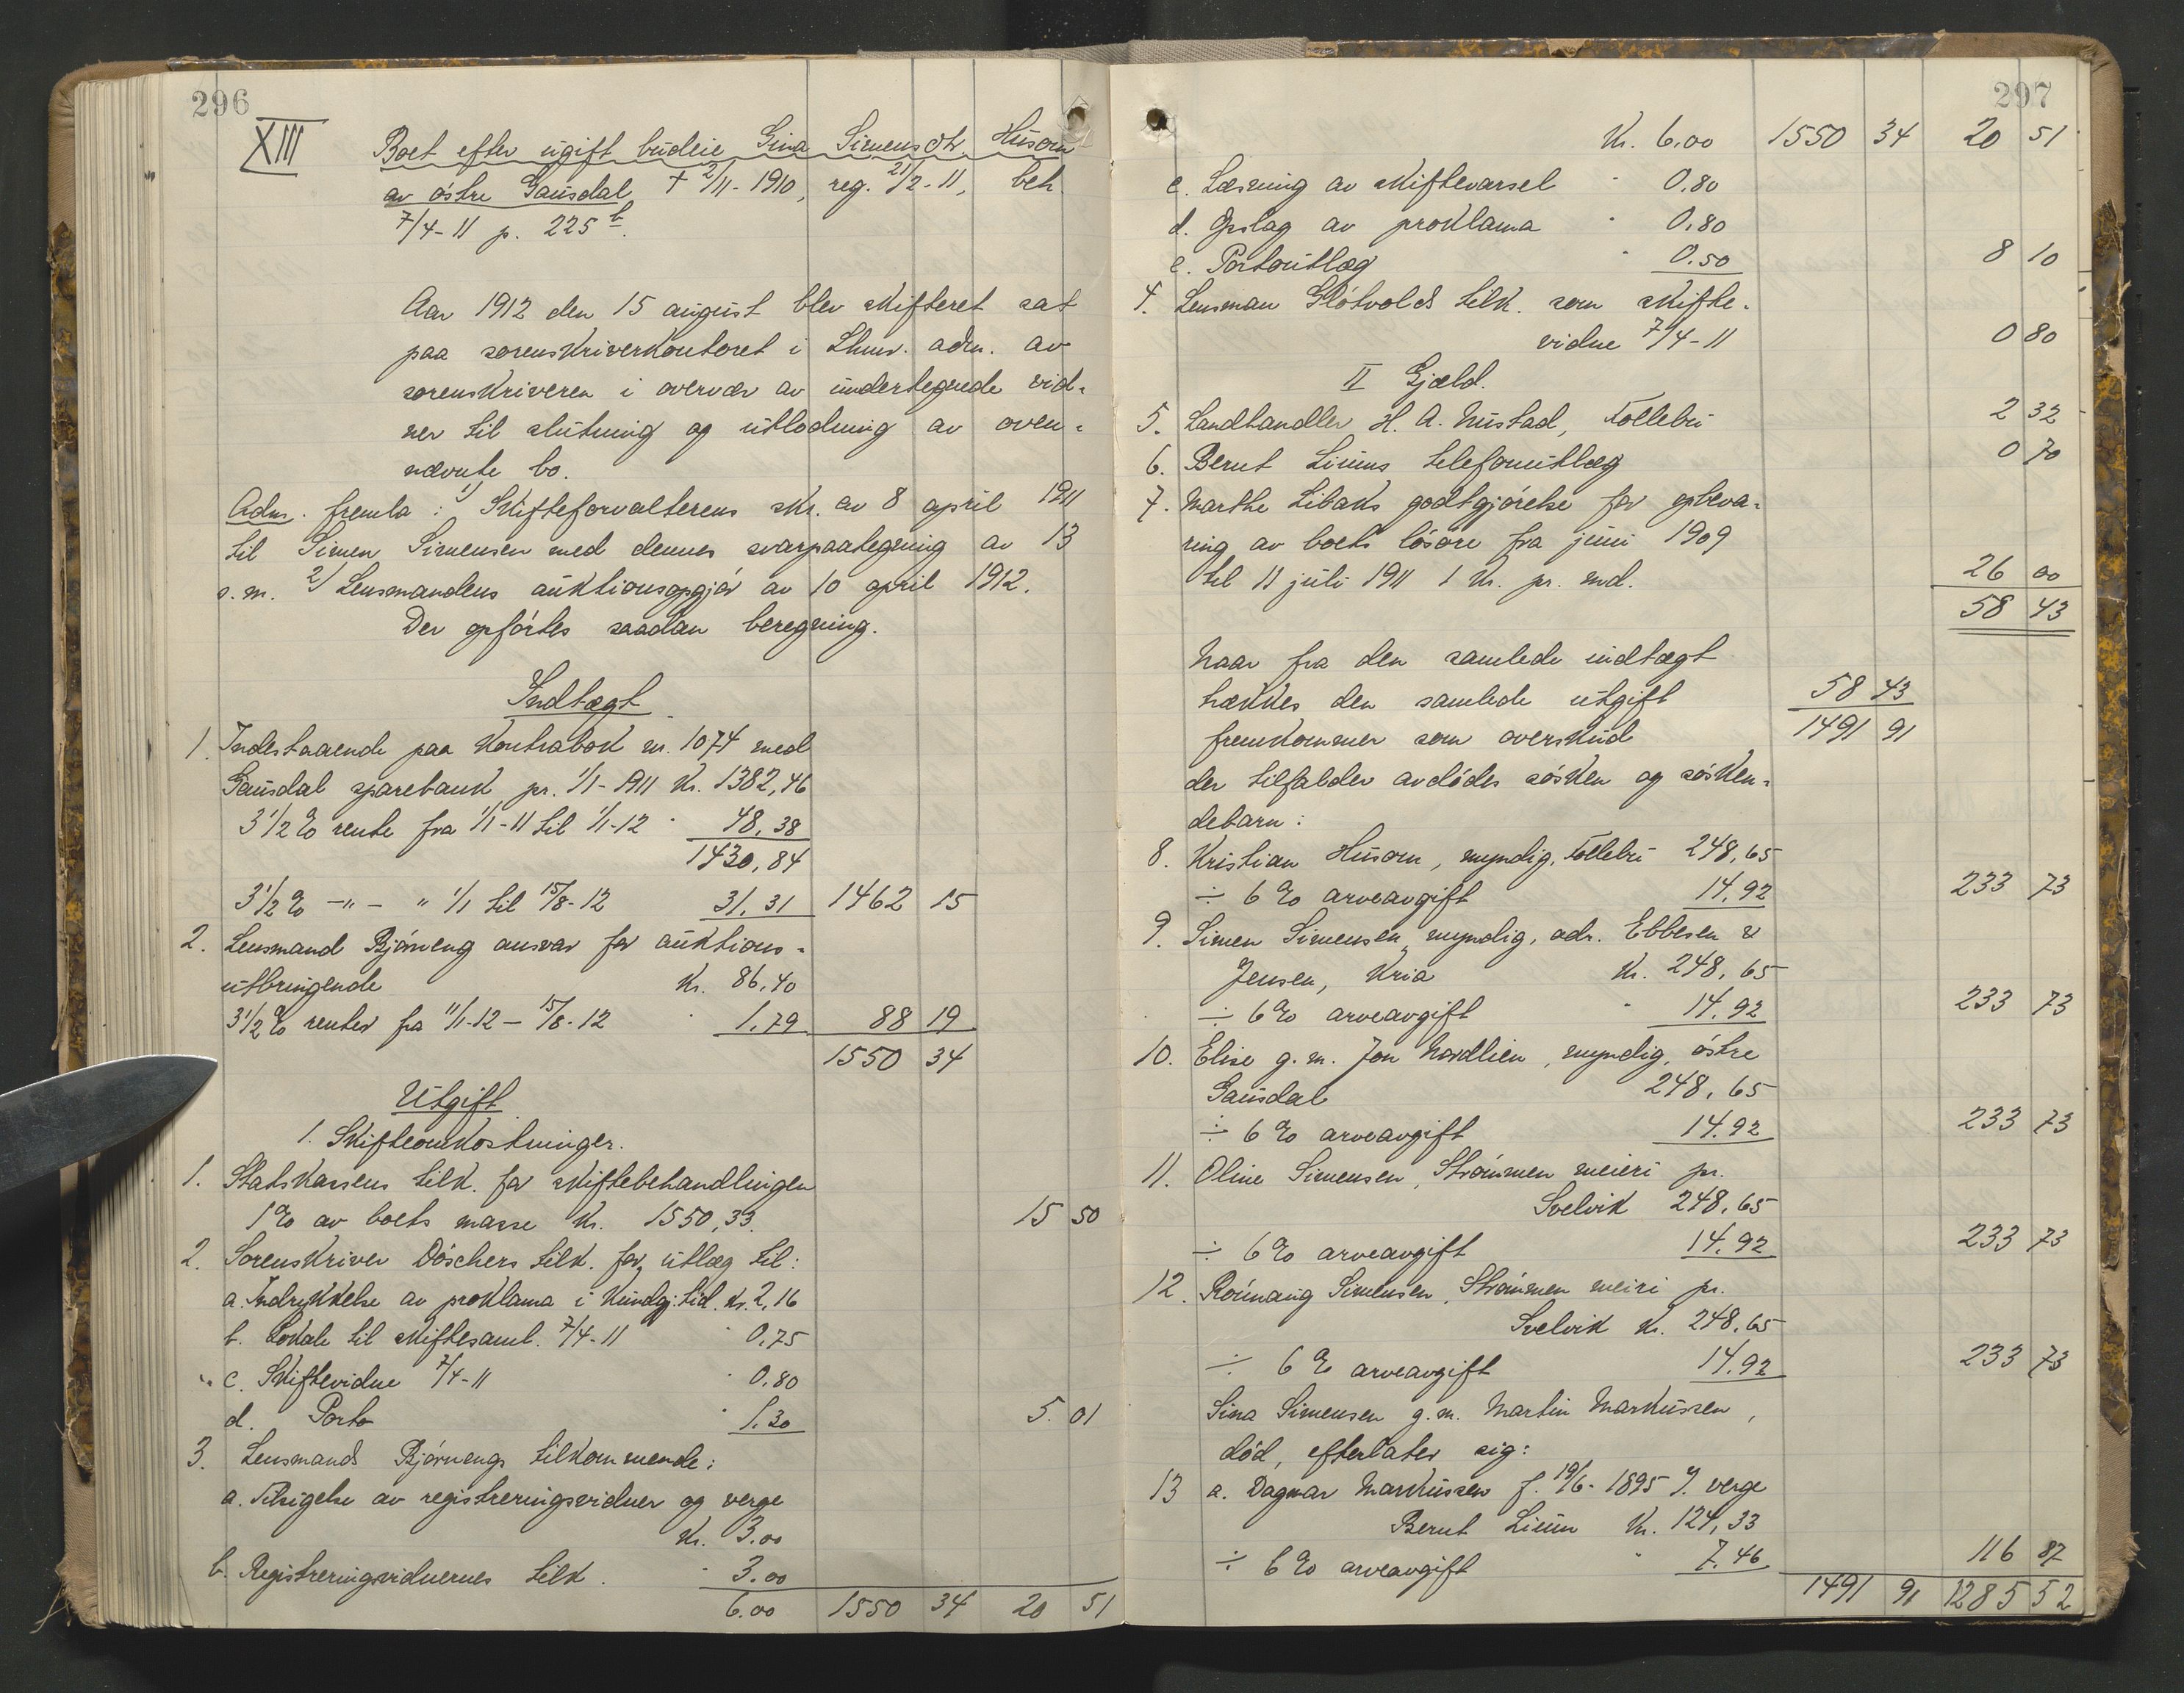 296
XIII
Boet efter ugift budeie Gina Simensdtr. Husom
av østre Gausdal † 2/11-1910, reg. 21/2-11, beh.
7/4-11 p. 225 b.
Aar 1912 den 15 august blev skifteret sat
paa sorenskriverkontoret i Lhmr. adm. av
sorenskriveren i overvær av undertegnede vid-
ner til slutning og utlodning av oven-
nævnte bo.
Adm. fremla: 1/ Skifteforvalterens skr. av 8 april 1911
til Simen Simensen med dennes svarpaategning av 13
s.m. 2/ Lensmandens auktionsopgjør av 10 april 1912.
Der opførtes saadan beregning.
Indtægt.
1. Indestaaende paa kontrabok nr. 1074 med
Gausdal sparebank pr. 1/1-1911 Kr. 1382,46
3 1/2 % rente fra 1/1-11 til 1/1-12 " 48,38
1430,84
3 1/2 % -"- " 1/1 til 15/8-12 31,31 1462 15
2. Lensmand Bjørneng ansvar for auktions-
utbringende Kr. 86,40
3 1/2 % renter fra 11/1-12 - 15/8-12 " 1,79 88 19
1550 34
Utgift
1. Skifteomkostninger.
1. Statskassens tilk. for skiftebehandlingen
1 % av boets masse Kr. 1550,33. 15 50
2. Sorenskriver Döschers tilk. for utlæg til:
a. Indrykkelse av proklama i Kundgj. tid. Kr. 2,16
b. Lokale til skiftesaml. 7/4-11 " 0,75
c. Skiftevidne 7/4-11 " 0,80
d. Porto " 1,30 5. 01
3. Lensmand Bjørnengs tilkommende:
a. Tilsigelse av registreringsvidner og verge
Kr. 3.00
b. Registreringsvidnernes tilk. " 3.00
6.00 1550 34 20 51
297
Kr. 6.00 1550 34 20 51
c. Læsning av skiftevarsel " 0,80
d. Opslag av proklama " 0,80
e. Portoutlæg " 0.50 8 10
4. Lensman Fløtvolds tilk. som skifte-
vidne 7/4-11 0 80
II Gjæld.
5. Landhandler H. A. Nustad, Follebu 2 32
6. Bernt Liums telefonutlæg 0 70
7. Marthe Libaks godtgjørelse for opbeva-
ring av boets løsøre fra juni 1909
til 11 juli 1911 1 Kr. pr. md. 26 00
58 43
Naar fra den samlede indtægt
trækkes den samlede utgift 58 43
fremkommer som overskud 1491 91
der tilfalder avdødes søsken og søsken-
debarn:
8. Kristian Husom, myndig, Follebu 248,65
÷ 6 % arveavgift 14,92 233 73
9. Simen Simensen, myndig, adr. Ebbesen &
Jensen, Kria Kr. 248,65
÷ 6 % arveavgift " 14.92 233 73
10. Elise g.m. Jon Nordlien, myndig, østre
Gausdal 248,65
÷ 6 % arveavgift 14.92 233 73
11. Oline Simensen, Strømmen meieri pr.
Svelvik 248,65
÷ 6 % arveavgift 14.92 233 73
12. Rønnaug Simensen, Strømmen meiri pr.
Svelvik Kr. 248,65
÷ 6 % arveavgift 14.92 233 73
Sina Simensen g.m. Martin Markussen,
død, efterlater sig:
13 a. Dagmar Markussen f. 19/6-1895 verge
Bernt Lium Kr. 124,33
÷ 6 % arveavgift " 7.46 116 87
1491 91 1285 52